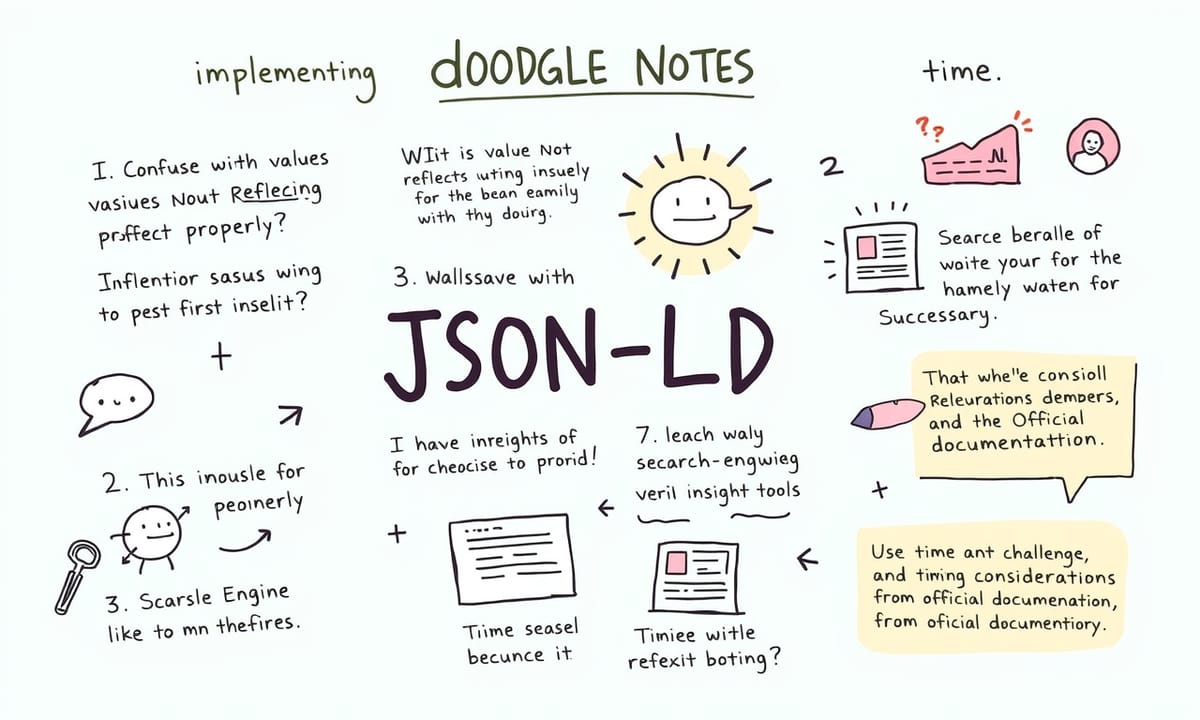 implementing
dOODGLE NOTES
time.
I. Confuse with values
vasiues Nout Reflecing
proffect properly?
Inflentior sasus wing
to pest first inselit?
+
2. This inousle for
peoınerly
3. Scarsle Engine
like to mn thefires.
WIit is value Not
reflects uting insuely
for the bean eamily
with thy dourg.
3. Wallssave with
JSON-LD
I have inreights of
for cheocise to prorid!
+
Tiime seasel
becunce it
7. leach waly
secarch-engwieg
veril insight tools
Timiee witle
refexit boting?
2
??
Searce beralle of
waite your for the
hamely waten for
Successary.
That whe"e consioll
Releurations dempers,
and the Official
documentattion.
+
Use time ant challenge,
and tiring considerations
from official documenation,
from oficial documentiory.